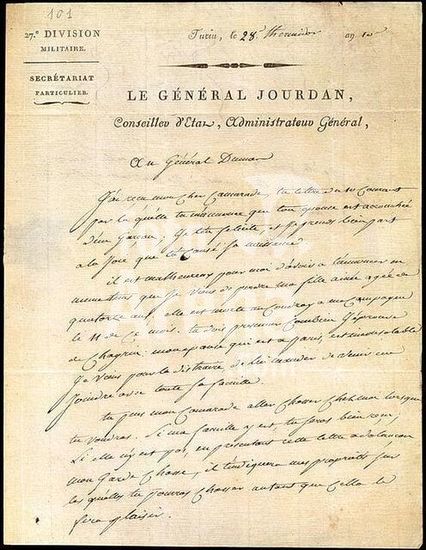 101
27.e DIVISION
MILITAIRE.
SECRÉTARIAT
PARTICULIER.
Turin, le 28 thermidor an 10
LE GÉNÉRAL JOURDAN,
Conseiller d'État, Administrateur Général,
Au Général Dumas
J'ai reçu mon cher Camarade, ta lettre du 10 Courant
par laquelle tu m'annonce que ton épouse est accouchée
d'un Garçon; je t'en félicite, et je prends bien part
a la joie que t'a causé sa naissance.
il est malheureux pour moi d'avoir a t'annoncer en
même tems que je viens de perdre ma fille ainée agée de
quatorze ans. elle est morte au Coudray a ma Campagne
le 11 de Ce mois. tu dois présumer Combien j'éprouve
de Chagrin. mon épouse qui est a paris, est inconsolable
je viens pour la distraire de lui mander de venir me
joindre avec toute sa famille.
tu peus mon Camarade aller Chasser Chez moi lorsque
tu voudras. Si ma famille y est, tu seras bien reçu,
Si elle n'y est pas, en présentant cette lettre a
mon Garde Chasse, il t'indiquera mes propriétés sur
les quelles tu pourras Chasser autant que Cella te
fera plaisir.